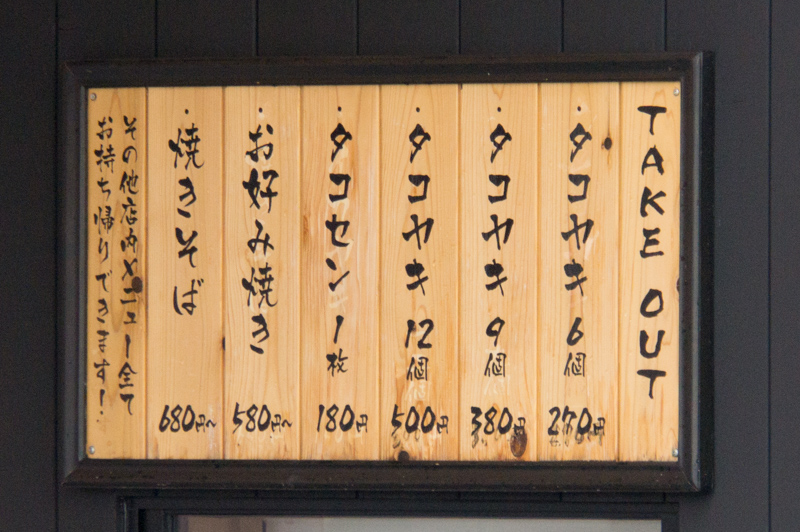 TAKE OUT
・タコヤキ 6個 270円
・タコヤキ 9個 380円
・タコヤキ 12個 500円
・タコセン 1枚 180円
・お好み焼き 580円〜
・焼きそば 680円〜
その他店内メニュー全て
お持ち帰りできます!